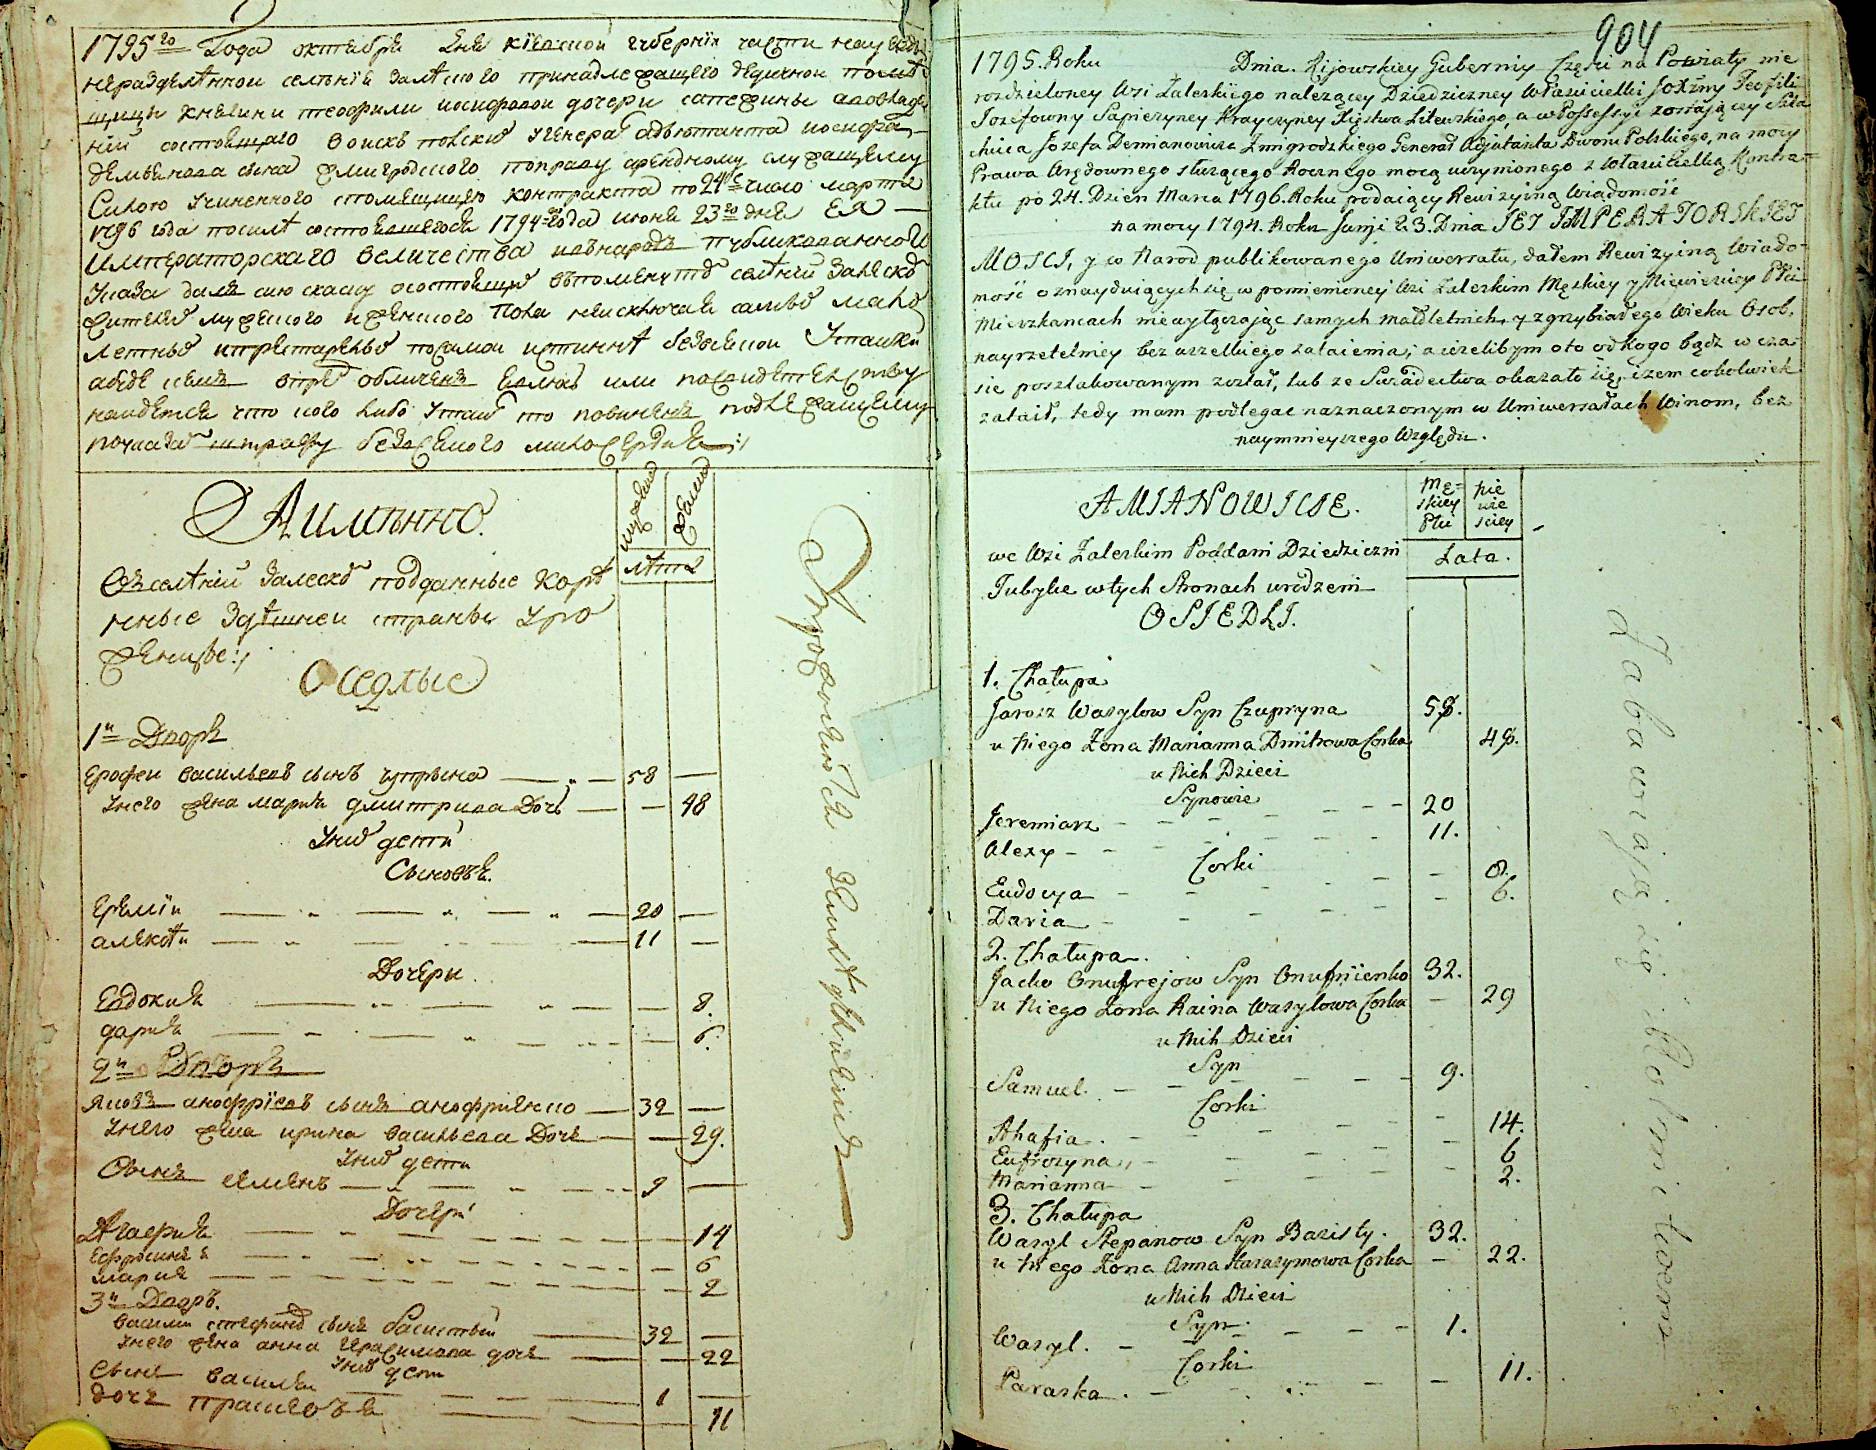 1795го Года октября дня Кіевской губернїи части на уезды
нераздѣленной селенїя Залѣского принадлежащего дедичной помѣ
щицы княгини теофили иосифовой дочери сапежины авовладе
нїи состоящаго войскъ польских генерал адъютанта иосифа
демьянова сына змигродского поправу арендному служащему
Силою учиненного спомещицею контракта по 24е число марта
1796 года посилѣ состоявшегося 1794 года июня 23го дня ЕЯ —
Императорскаго Величества и въ народъ публикованного
Указа далъ сию скаску осостоящих въ помянутом селенїи Залеском
жителей мужеского и женского пола неисключая самых мало
летных ипрестарелых посамой истиннѣ безвсякой Утайки
а буде кемъ впред обличенъ явлюсь или по свидетельству
найдется что кого либо утаил то повиненъ подлежащему
по указам штрафу безо всякого милосердия :/
мужеска женска
лѣта
А именно.
Въ селенїи Залеском подданные коре
нные здѣшней страны уро
женцы :/
Оседлые
1й Дворъ
Ерофей васильевъ сынъ чупрына — „ — 58 —
Унего жена мария дмитриева Дочь — — 48
Уних дети
Сыновья.
Еремїй — „ — „ — „ — 20 —
алексѣй — „ — — — 11 —
Дочери
Евдокия — „ — „ — — 8.
дария — „ — „ — — 6.
2й Дворъ
Яковъ анофрїевъ сынъ анофриенко — 32 —
Унего жена ирина васильева Дочь — — 29.
Уних дети
Сынъ семенъ — „ — „ — 9 —
Дочери
Агафия — „ — — 14
Ефросиния — „ — — 6
мария — — — 2
3й Дворъ.
василий стефанов сынъ басистый — 32 —
Унего жена анна герасимова дочь — — 22
Уних дети
Сынъ василий — 1 —
дочь прасковья — 11
904
1795. Roku Dnia. Kijowskiey Gubernij Części na Powiaty nie
rozdzieloney Wsi Zaleskiego nalezącey Dziedziczney Własicielki Jołżny Teofili
Jozefowny Sapiezyney Krayczyney Xięstwa Litewskiego, a w Possessyi zostającey
Józefa Demianowicza Zmigrodzkiego Generał Adjutanta Dworu Polskiego, na mocy
Prawa Arędownego słuzącego Rocznego mocą uczynionego z Własicielką Kontra-
ktu po 24. Dzien Marca 1796. Roku podaiący Rewizyiną Wiadomość
na mocy 1794. Roku Junij 23. Dnia JEY IMPERATORSKIEY
MOSCI, y w Narod publikowanego Uniwersału, dałem Rewizyiną Wiado-
mość o znayduiących się w pomienioney Wsi Zaleskim Męskiey y Niewiesciey Płci
Mieszkancach niewyłączaiąc samych Małoletnich, y zgrzybiałego Wieku Osob,
nayrzetelniey bez wszelkiego zataienia; a iezelibym oto od kogo bądz w cza-
sie poszlakowanym został, lub ze Swiadectwa okazało się, izem cokolwiek
zataił, tedy mam podlegac naznaczonym w Uniwersałach Winom, bez
naymnieyszego Względu.
Mę-
skiey
Płci
nie
wie
sciey
Lata.
A MIANOWICIE.
we Wsi Zaleskim Poddani Dziedziczni
Tubylce w tych Stronach urodzeni
OSIEDLI.
1. Chałupa
Jarosz Wasylow Syn Czupryna 58.
u Niego Zona Marianna Dmitrowa Corka 48.
u Nich Dzieci
Synowie
Jeremiasz - - - - 20
Alexy - - - - 11.
Corki
Eudocya - - - - 8.
Daria - - - - 6.
2. Chałupa.
Jacko Onufrejow Syn Onufrijenko 32.
u Niego Zona Raina Wasylowa Corka - 29
u Nich Dzieci
Syn
Samuel. - - - - 9.
Corki
Ahafia. - - - - 14.
Eufrozyna, - - - - 6
Marianna - - - - 2.
3. Chałupa
Wasyl Stepanow Syn Basisty. 32.
u Niego Zona Anna Harasymowa Corka - 22.
u Nich Dzieci
Syn.
Wasyl. - - - - 1.
Corki
Paraska. - - - - 11.